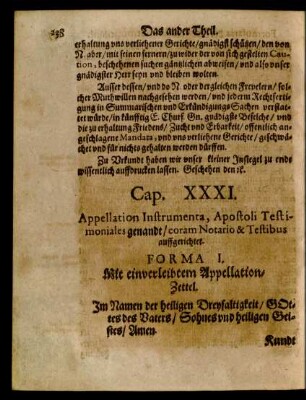 238
Das ander Theil.
erhaltung vns verliehener Gerichte/ gnädigst schützen/ den von
N. aber/ mit seinen fernern/ zu wider der von sich gestelten Cau-
tion, beschehenen suchen gäntzlichen abweisen/ vnd also vnser
gnädigster Herr seyn vnd bleiben wolten.
Ausser dessen/ vnd do N. oder dergleichen Frevelen/ sol-
cher Muthwillen nachgesehen werden/ vnd jederm Rechtferti-
gung in Summarischen vnd Erkündigungs Sachen verstat-
tet würde/ in künfftig E. Churf. Gn. gnädigste Befelche/ vnd
die zu erhaltung Friedens/ Zucht vnd Erbarkeit/ offentlich an-
geschlagene Mandata, vnd vns verliehene Gerichte/ geschwä-
chet vnd für nichts gehalten werden dürffen.
Zu Vrkunde haben wir vnser kleiner Insiegel zu ends
wissentlich auffdrucken lassen. Geschehen den ꝛc.
Cap. XXXI.
Appellation Instrumenta, Apostoli Testi-
moniales genandt/ coram Notario & Testibus
auffgerichtet.
FORMA I.
Mit einverleibtem Appellation-
Zettel.
Im Namen der heiligen Dreyfaltigkeit/ GOt-
tes des Vaters/ Sohnes vnd heiligen Gei-
stes/ Amen.
Kundt